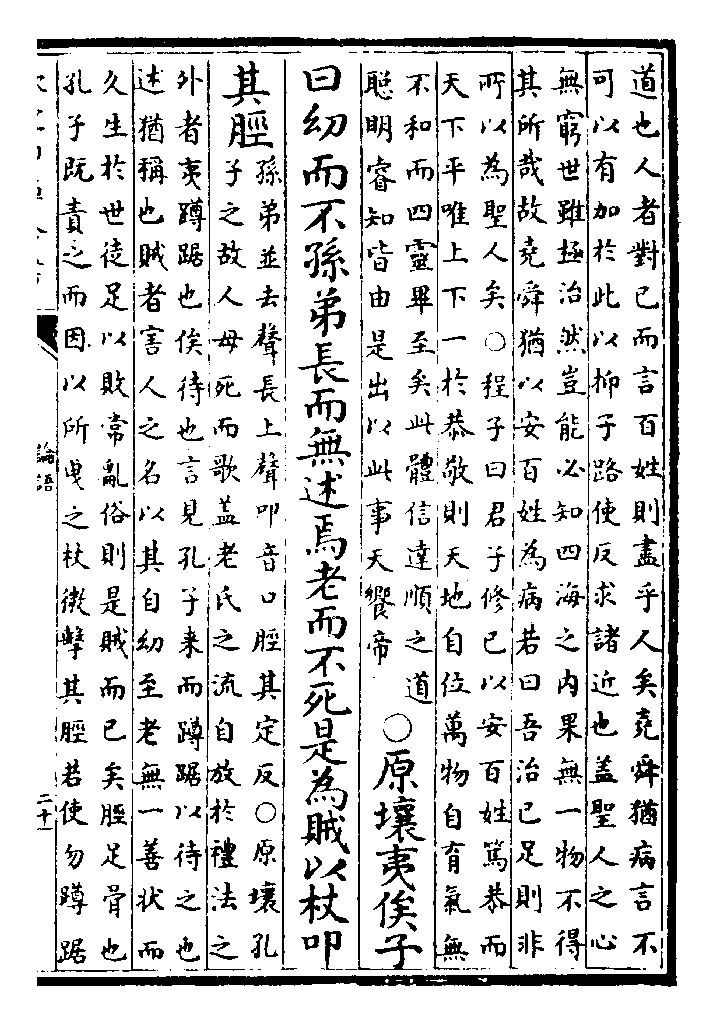 道也人者對己而言百姓則盡乎人矣堯舜猶病言不
可以有加於此以抑子路使反求諸近也盖聖人之心
無窮世雖極治然豈能必知四海之内果無一物不得
其所哉故堯舜猶以安百姓為病若曰吾治已足則非
所以為聖人矣○程子曰君子修已以安百姓篤恭而
天下平唯上下一於恭敬則天地自位萬物自育氣無
不和而四靈畢至矣此體信達順之道
聰明睿知皆由是出以此事天饗帝
○原壤夷俟子
曰幼而不孫弟長而無述焉老而不死是為賊以杖叩
其脛
孫弟並去聲長上聲叩音口脛其定反○原壤孔
子之故人母死而歌盖老氏之流自放於禮法之
外者夷蹲踞也俟待也言見孔子来而蹲踞以待之也
述猶稱也賊者害人之名以其自幼至老無一善状而
久生於世徒足以敗常亂俗則是賊而已矣脛足骨也
孔子既責之而因以所曵之杖微擊其脛若使勿蹲踞
論語
二十